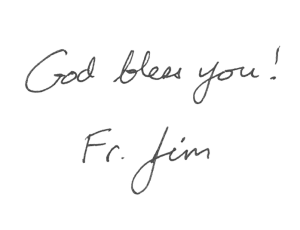 God bless you!
Fr. Jim